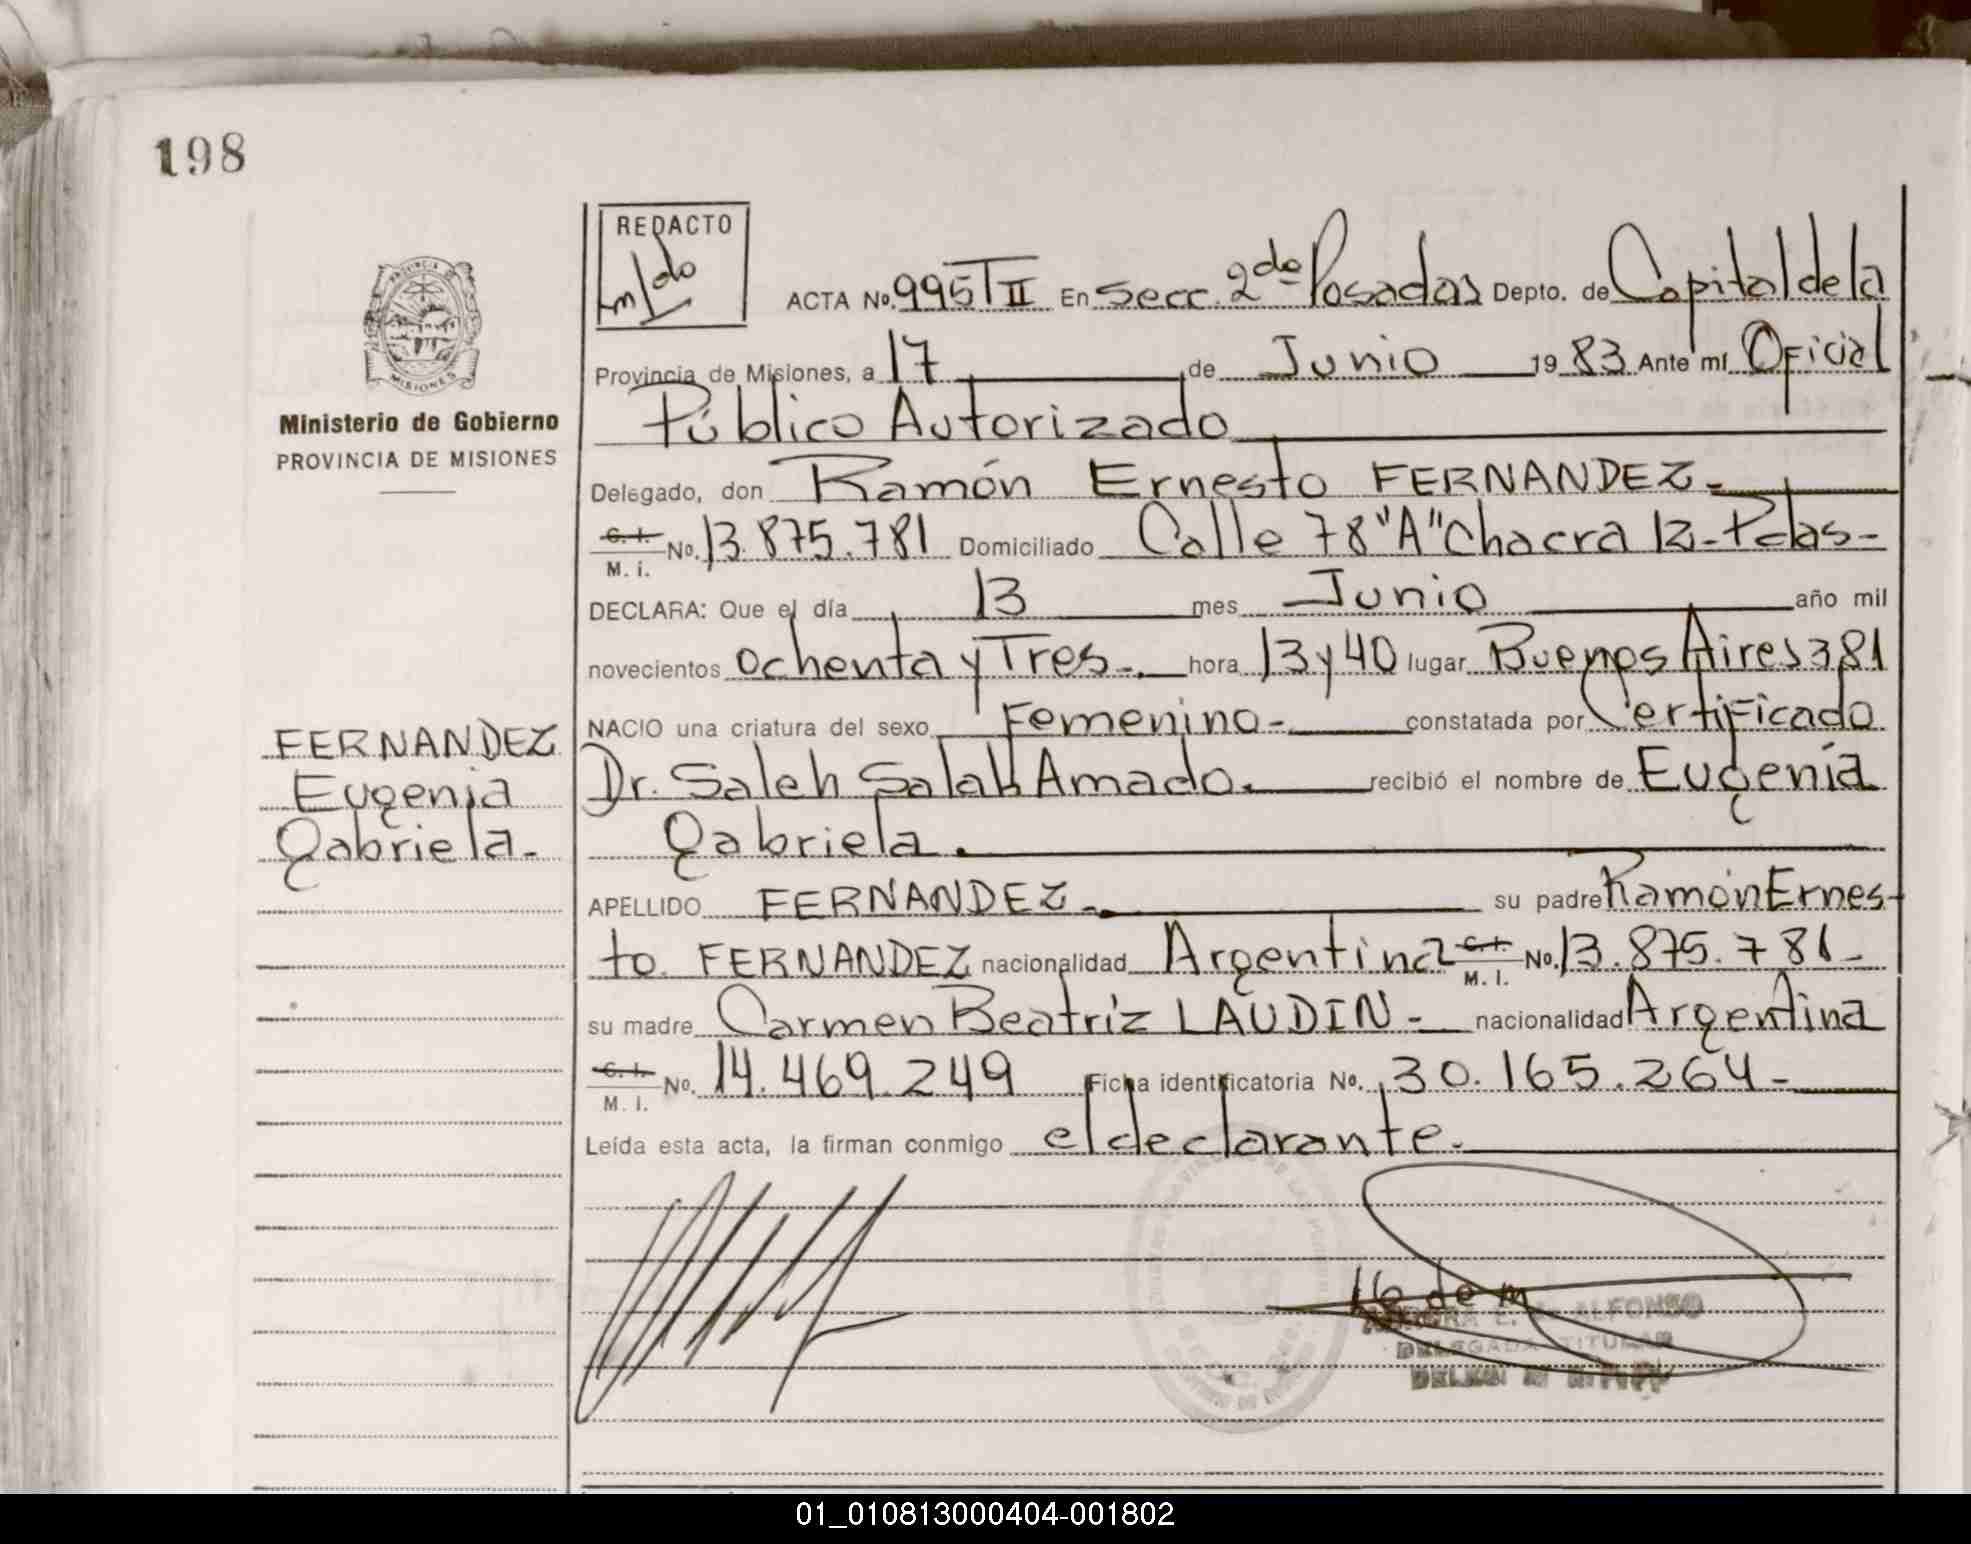 198
REDACTO
PROVINCIA DE
MISIONES
Ministerio de Gobierno
PROVINCIA DE MISIONES
ACTA No. 995 T II En Secc. 2da Posadas Depto. de Capital de la
Provincia de Misiones, a 17 de Junio 1983 Ante mí Oficial
Público Autorizado
Delegado, don Ramón Ernesto FERNANDEZ.-
C. I.
M. i. No. 13.875.781 Domiciliado Calle 78 "A" Chacra 12-Pdas-
DECLARA: Que el día 13 mes Junio año mil
novecientos ochenta y Tres-. hora 13 y 40 lugar Buenos Aires 381
NACIO una criatura del sexo Femenino- constatada por Certificado
Dr. Saleh Salah Amado. recibió el nombre de Eugenia
Gabriela.
FERNANDEZ
Eugenia
Gabriela.-
APELLIDO FERNANDEZ.- su padre Ramón Ernes-
to FERNANDEZ nacionalidad Argentina C. I. M. I. No. 13.875.781-
su madre Carmen Beatríz LAUDIN- nacionalidad Argentina
C. I.
M. I. No. 14.469.249 Ficha identificatoria No. 30.165.264-
Leída esta acta, la firman conmigo el declarante.-
16 de m
ALFONSO
DELEGADA TITULAR
01_010813000404-001802